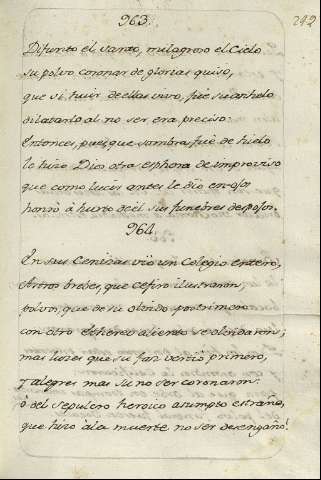 963.
242
Difunto el santo, milagroso el Cielo
su polvo coronar de glorias quiso,
que si huir de ellas vivo, fue su anhelo
dilatarlo al no ser, era preciso:
Entonces, pues, que sombra fue de hielo
le hizo Dios otra esphera de improviso
que como lucir antes le dio enojos
honró à hurto de el sus funebres despojos.
964.
En sus Cenizas vio un Colegio entero,
Astros brebes, que Cefiro ilustraron,
polvos, que de su olvido postrimero
con otro Ethereo aliento se olvidaron;
mas luzes que su faz vertió primero,
y alegres mas su no ser coronaron:
ò del sepulcro heroico asumpto estraño,
que hizo à la muerte no ser desengaño!